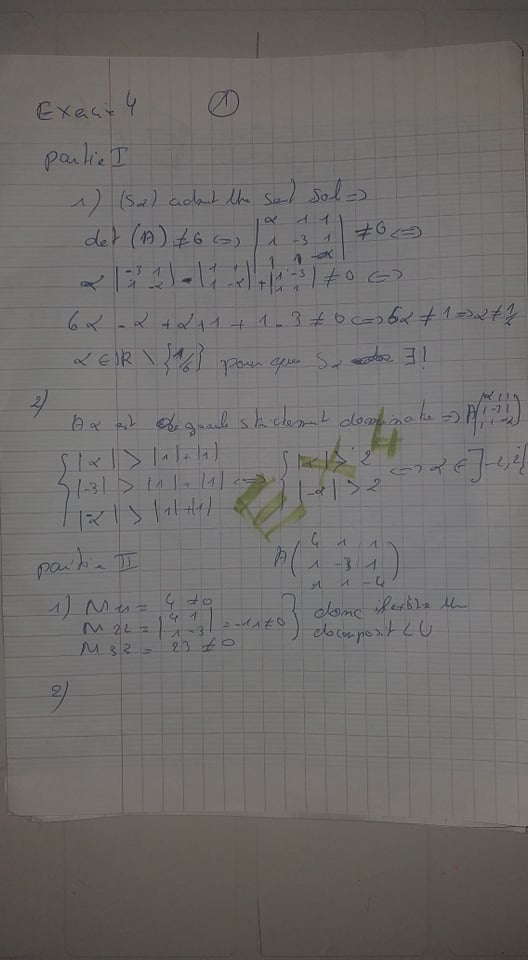 Exercice 4 ①
partie I
1) (Sα) admet Une seul Sol =>
det (A) ≠ 0 <=> | α 1 1 ; 1 -3 1 ; 1 1 -α | ≠ 0 <=>
α | -3 1 ; 1 -α | - | 1 1 ; 1 -α | + | 1 -3 ; 1 1 | ≠ 0 <=>
6α - α + α + 1 + 1 - 3 ≠ 0 <=> 6α ≠ 1 => α ≠ 1/
α ∈ IR \ {1/6} pour que Sα ∃!
2)
Aα est strictement dominante => A( α 1 1 ; 1 -3 1 ; 1 1 -α )
{ |α| > |1| + |1| ; |-3| > |1| + |1| ; |-α| > |1| + |1| <=> { |α| > 2 ; |-α| > 2 <=> α ∈ ]-2, 2[
partie II A( 4 1 1 ; 1 -3 1 ; 1 1 -4 )
1) M11 = 4 ≠ 0
M22 = | 4 1 ; 1 -3 | = -11 ≠ 0 } donc Une
M32 = 23 ≠ 0 decomposit LU
2)